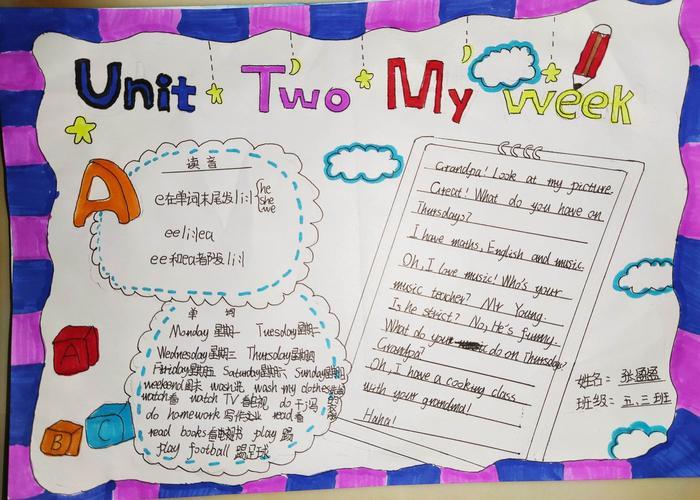 Unit Two My week
A
读音
e在单词末尾发/i:/ he
she
we
ee/i:/ea
ee和ea都发/i:/
单词
Monday 星期一 Tuesday 星期二
Wednesday 星期三 Thursday 星期四
Friday 星期五 Saturday 星期六 Sunday 星期日
weekend 周末 wash 洗 wash my clothes
watch 看 watch TV 看电视 do 干
do homework 写作业 read 看
read books 看书 play 踢
play football 踢足球
A
B
C
Grandpa! Look at my picture.
Great! What do you have on
Thursdays?
I have maths, English and music.
Oh, I love music! Who's your
music teacher? Mr Young.
Is he strict? No, He's funny.
What do your do on Thursday?
Grandpa?
Oh, I have a cooking class
with your grandma!
Haha!
姓名: 张
班级: 五、三班